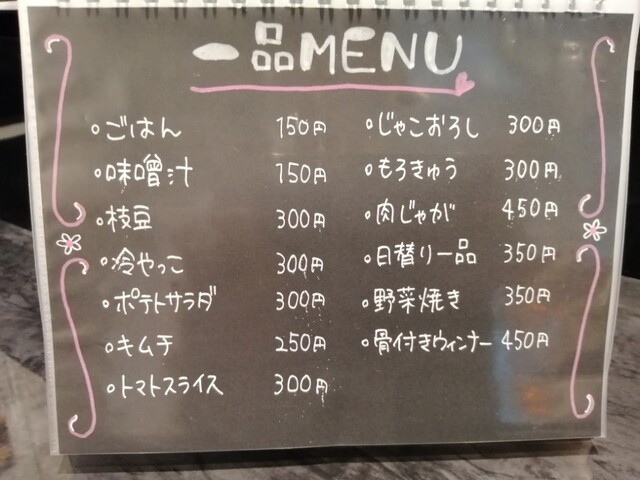 一品MENU
・ごはん 150円
・味噌汁 150円
・枝豆 300円
・冷やっこ 300円
・ポテトサラダ 300円
・キムチ 250円
・トマトスライス 300円
・じゃこおろし 300円
・もろきゅう 300円
・肉じゃが 450円
・日替り一品 350円
・野菜焼き 350円
・骨付きウィンナー 450円